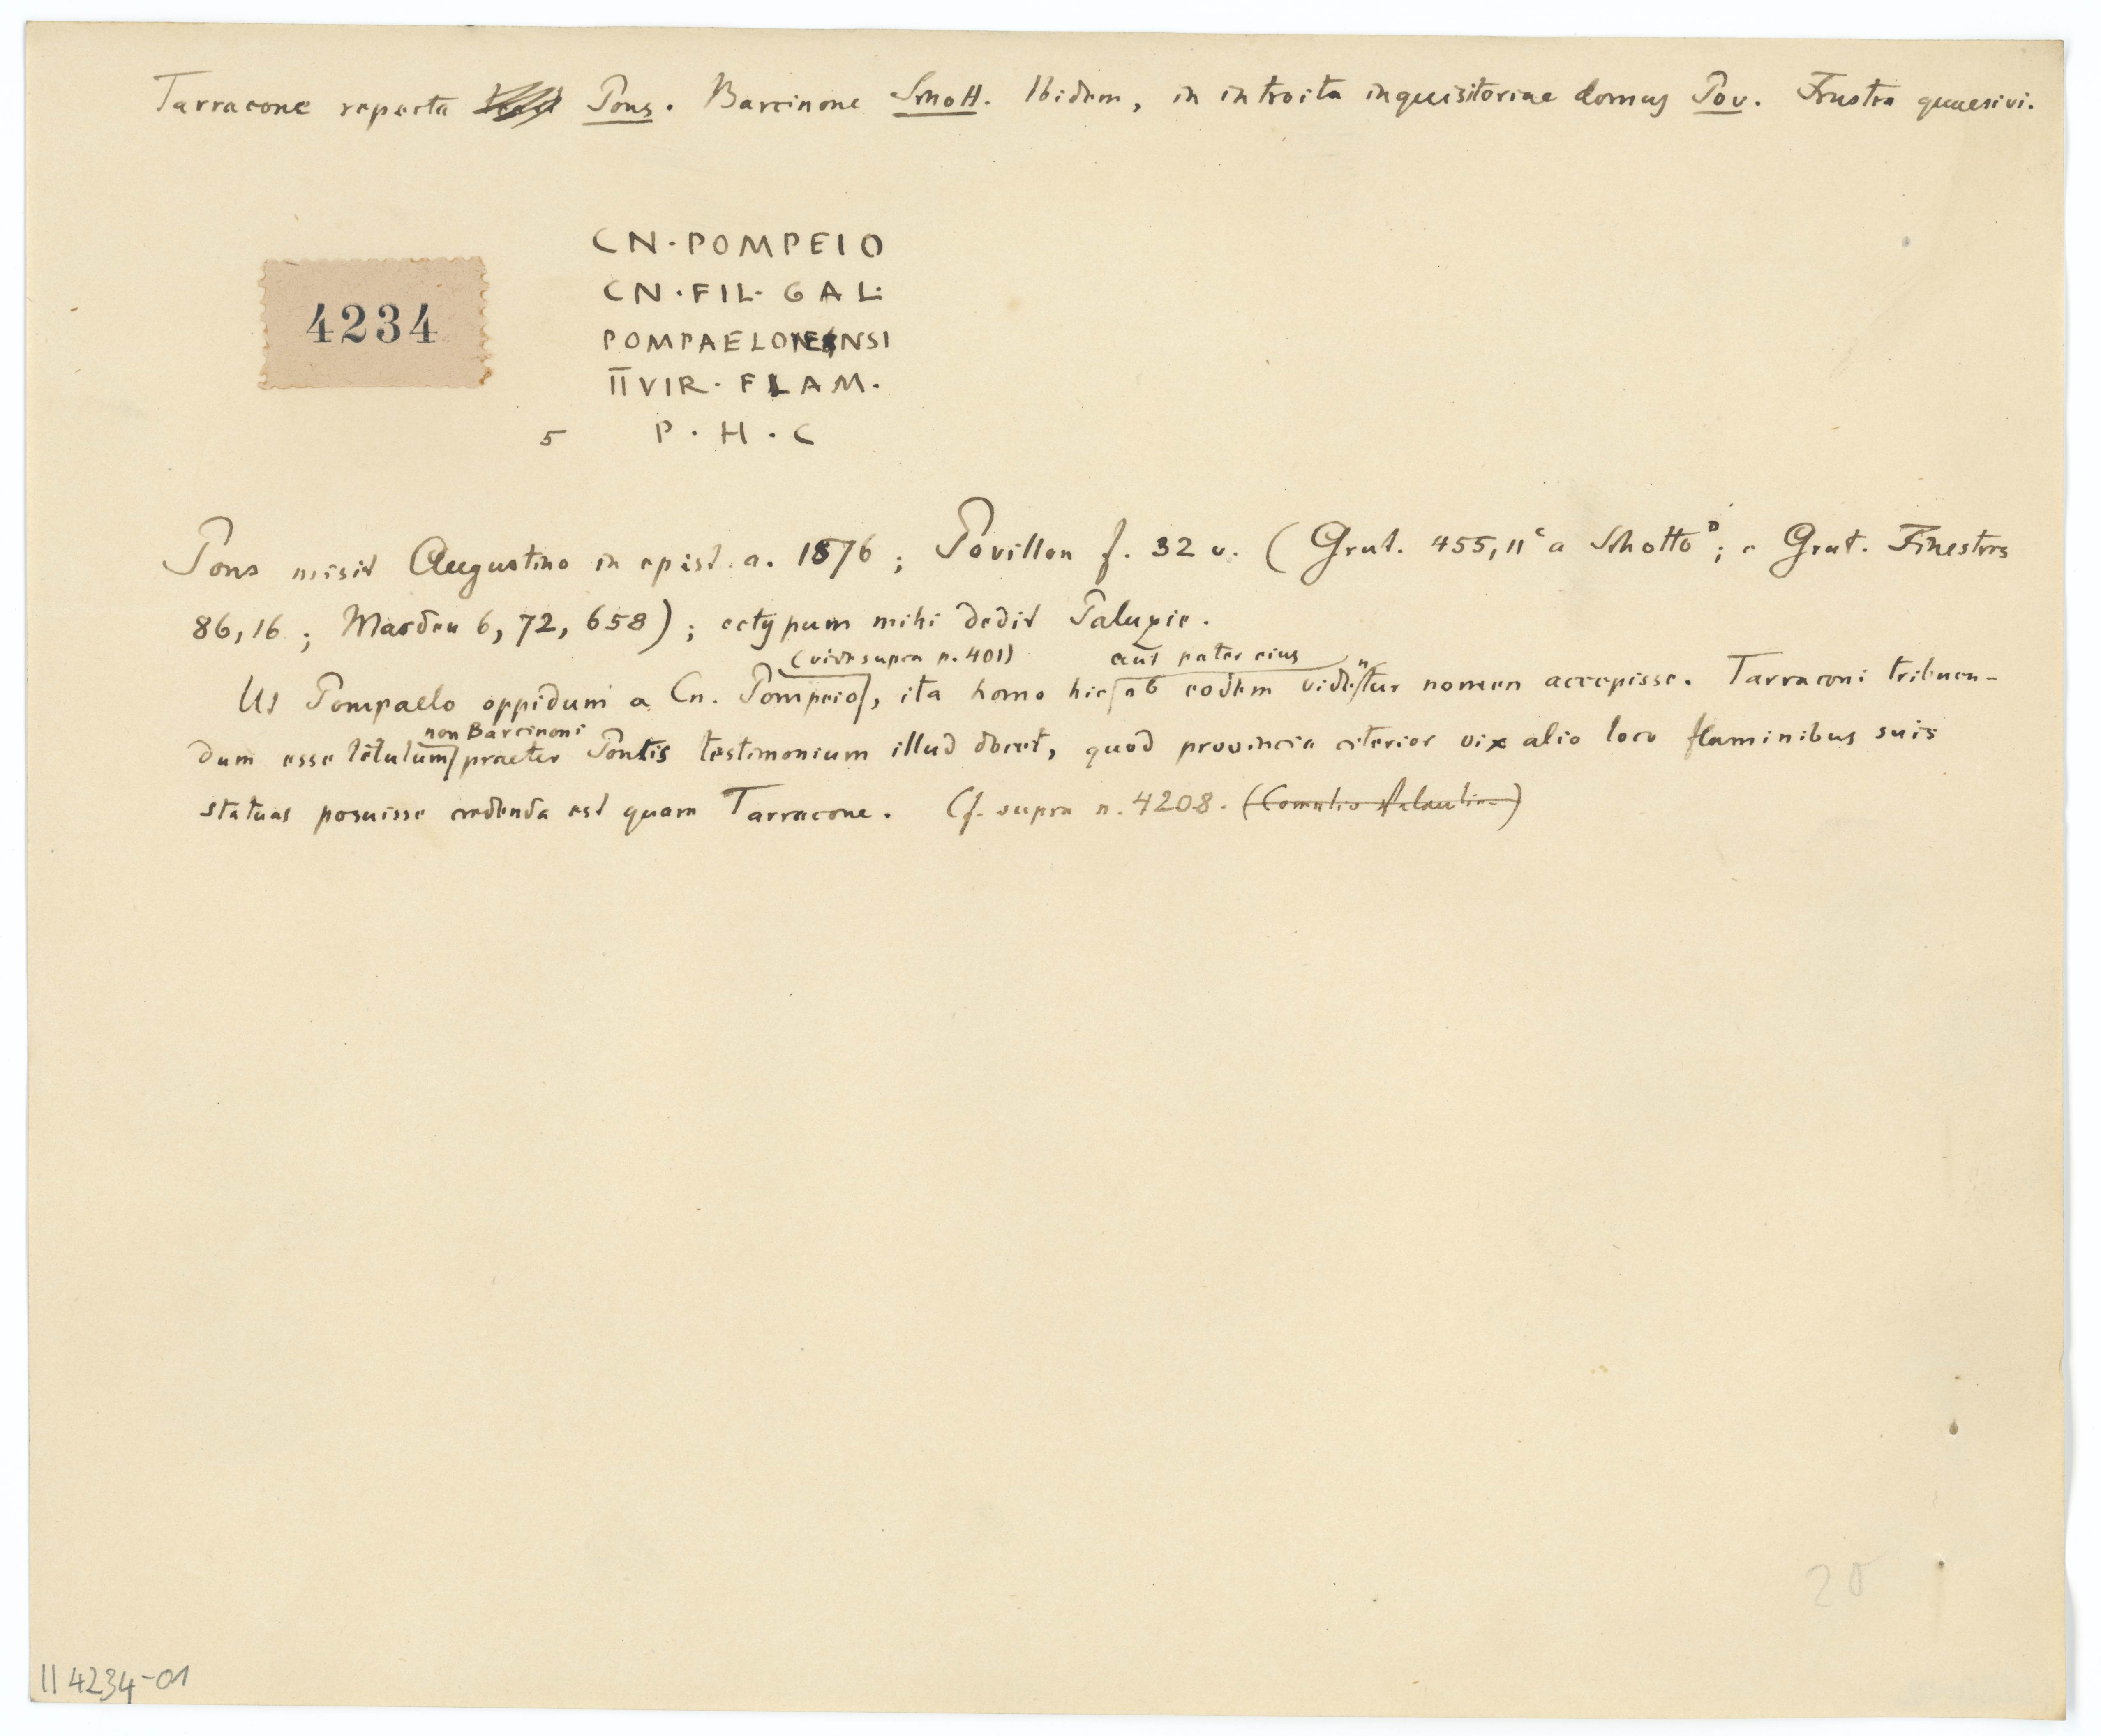 Tarracone reperta Pons. Barcinone Schott. Ibidem, in introitu inquisitoriae domus Pov. Frustra quaesivi.
CN·POMPEIO
CN·FIL·GAL·
4234
POMPAELONENSI
IIVIR·FLAM·
5 P·H·C
Pons misit Augustino in epist. a. 1576; Povillon f. 32 v. (Grut. 455,11 a Schotto; e Grut. Finestres
86,16; Masdeu 6, 72, 658); ectypum mihi dedit Paluzie.
(vide supra n. 401) aut pater eius n
Ut Pompaelo oppidum a Cn. Pompeio, ita homo hic ab eodem videtur nomen accepisse. Tarraconi tribuen-
non Barcinoni
dum esse titulum praeter Pontis testimonium illud docet, quod provincia citerior vix alio loco flaminibus suis
statuas posuisse credenda est quam Tarracone. Cf. supra n. 4208.
20
II 4234-01